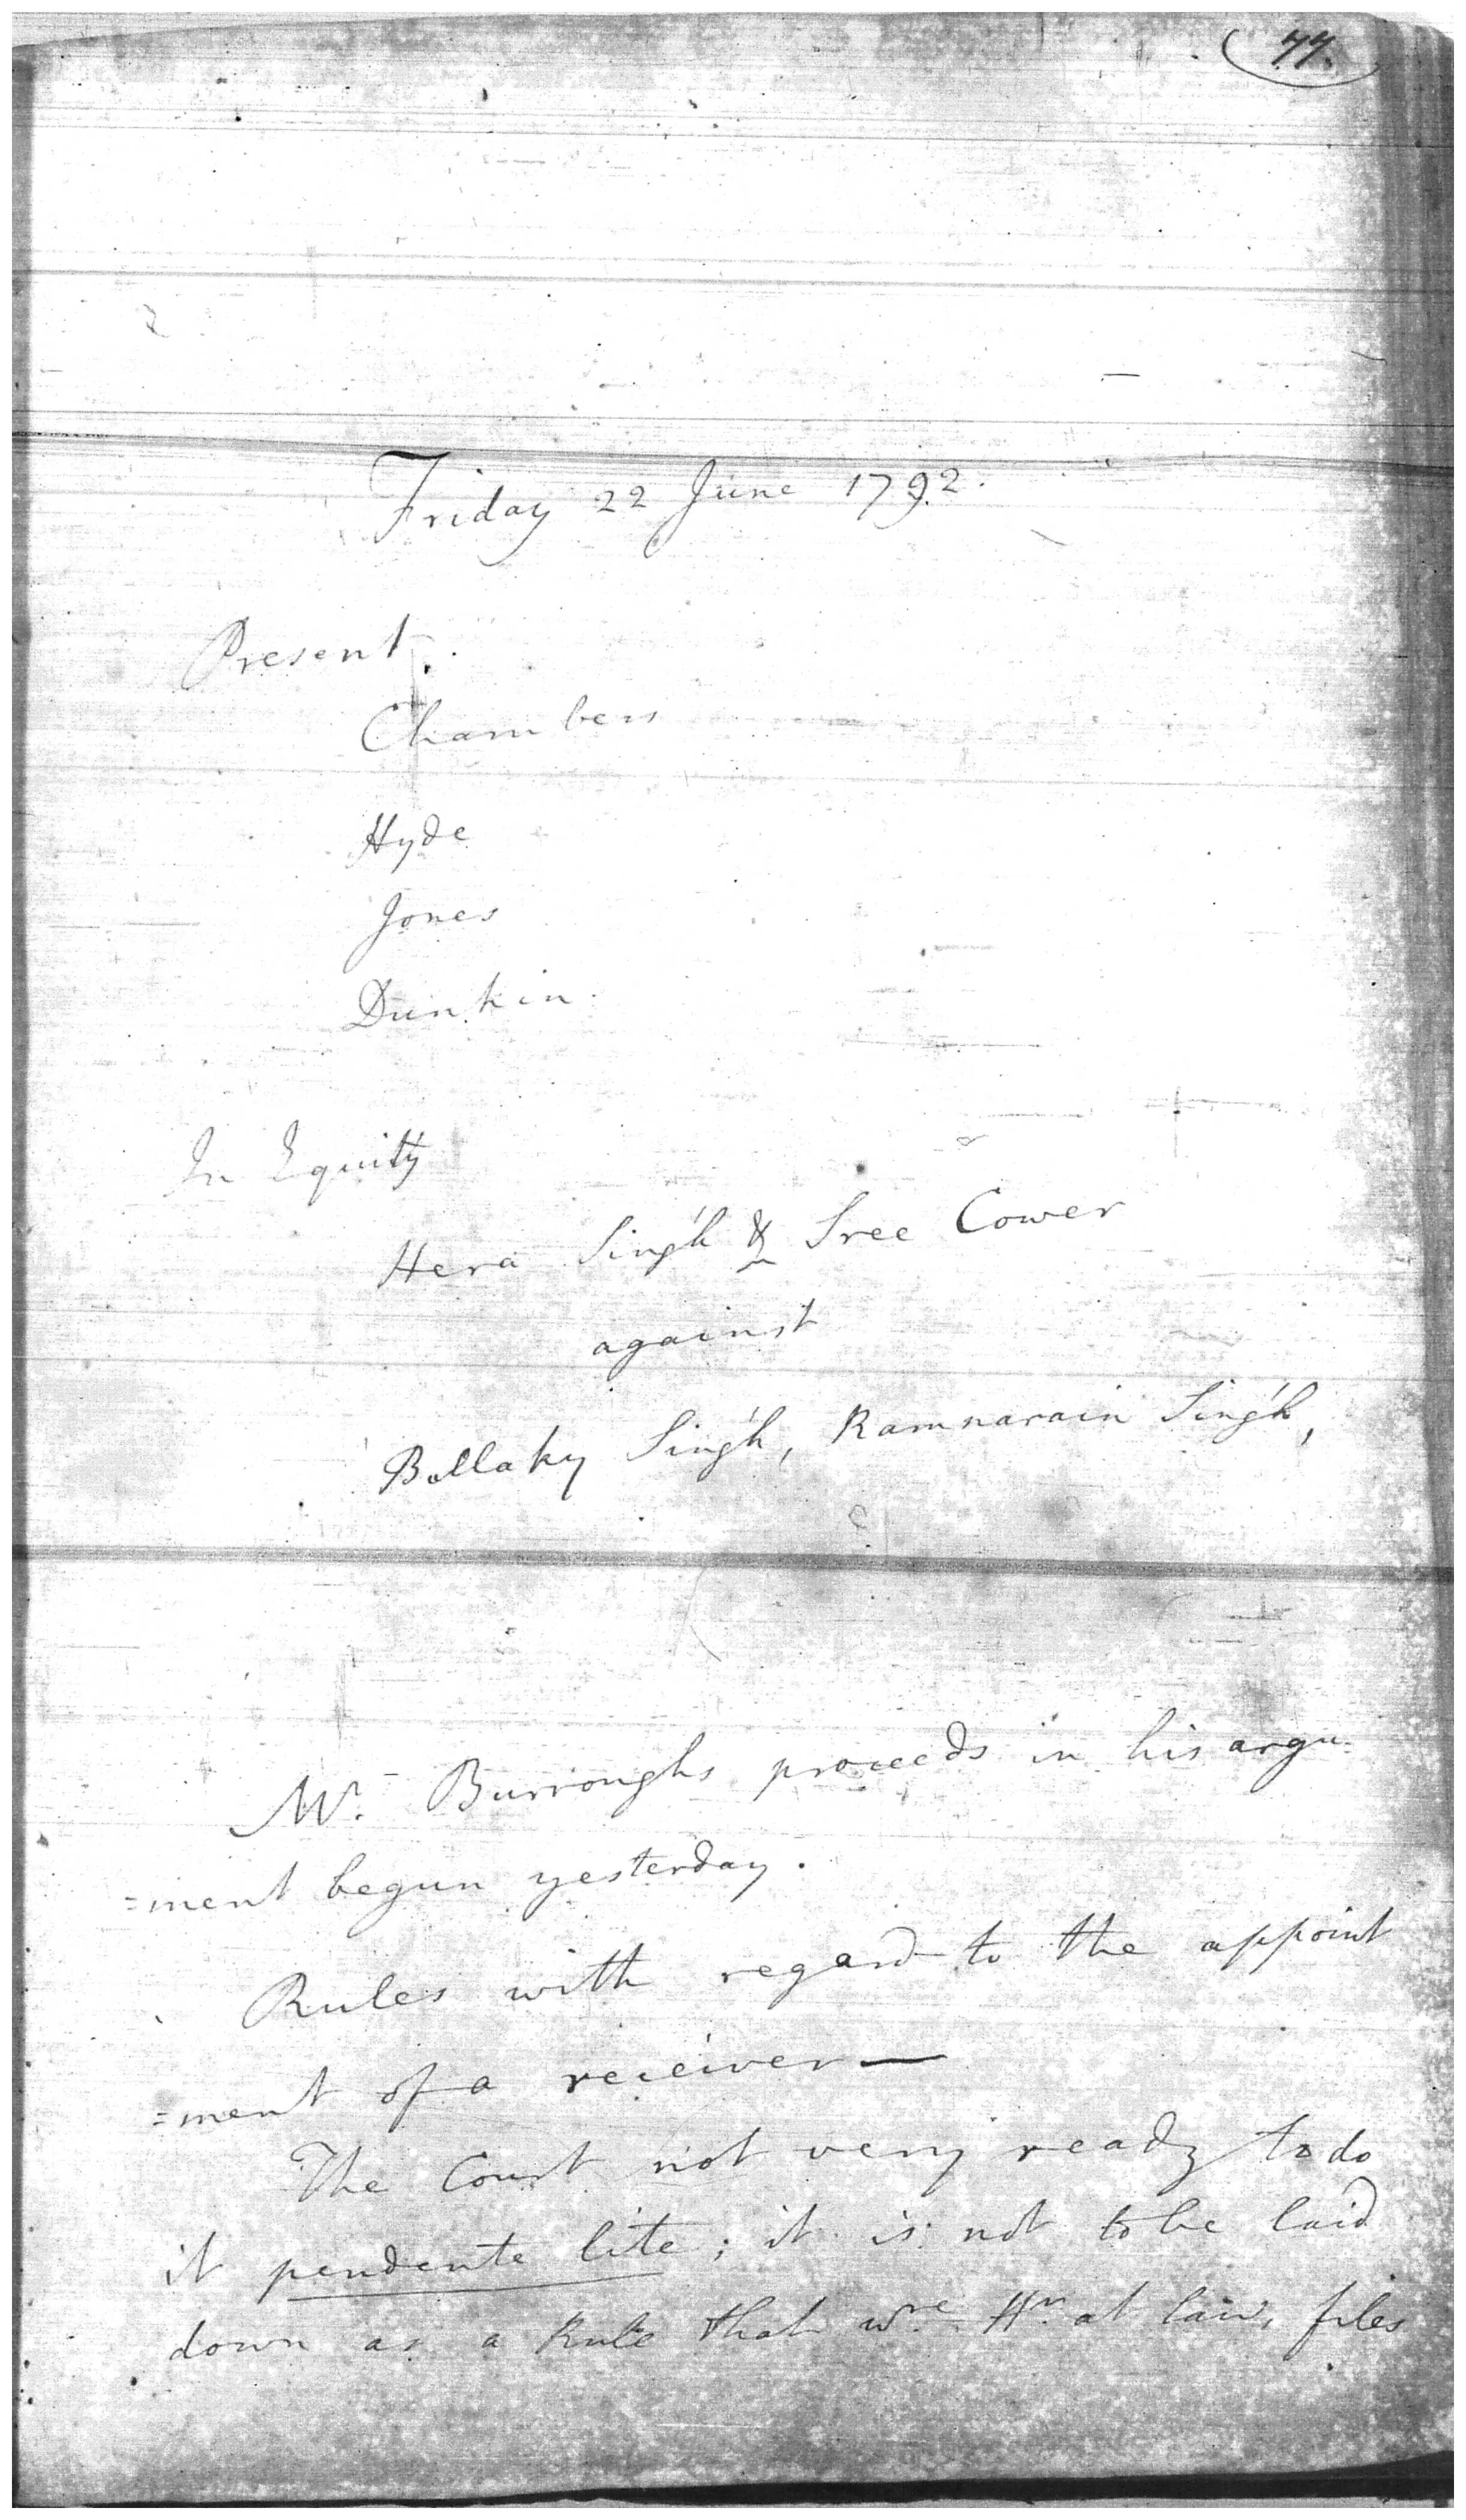 77.
Friday 22 June 1792.
Present.
Chambers
Hyde
Jones
Dunkin.
In Equity
Hera Singh & Sree Cower
against
Bollaky Singh, Ramnarain Singh,
Mr. Burroughs proceeds in his argu-
=ment begun yesterday.
Rules with regard to the appoint
=ment of a receiver—
The Court not very ready to do
it pendente lite; it is not to be laid
down as a Rule that wre Hr at law, files